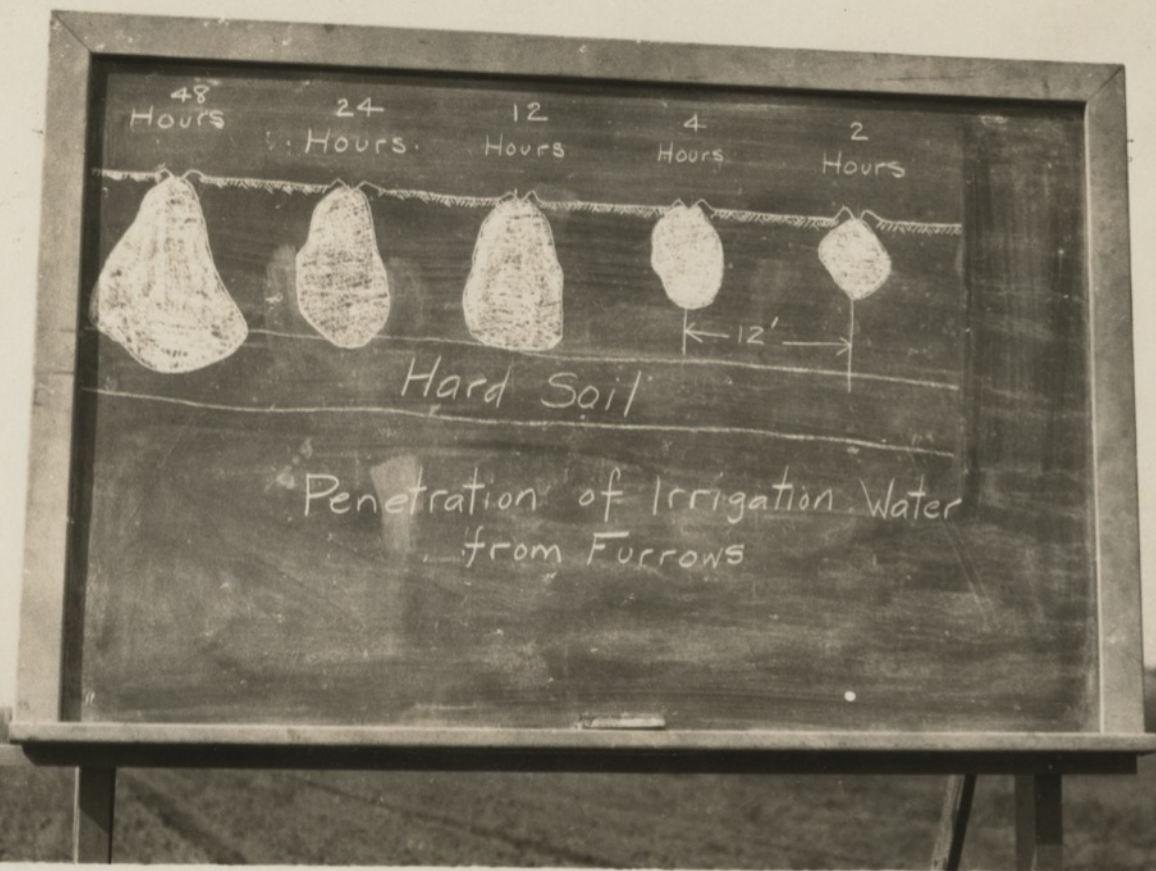 48
Hours
24
Hours
12
Hours
4
Hours
2
Hours
12'
Hard Soil
Penetration of Irrigation Water
from Furrows